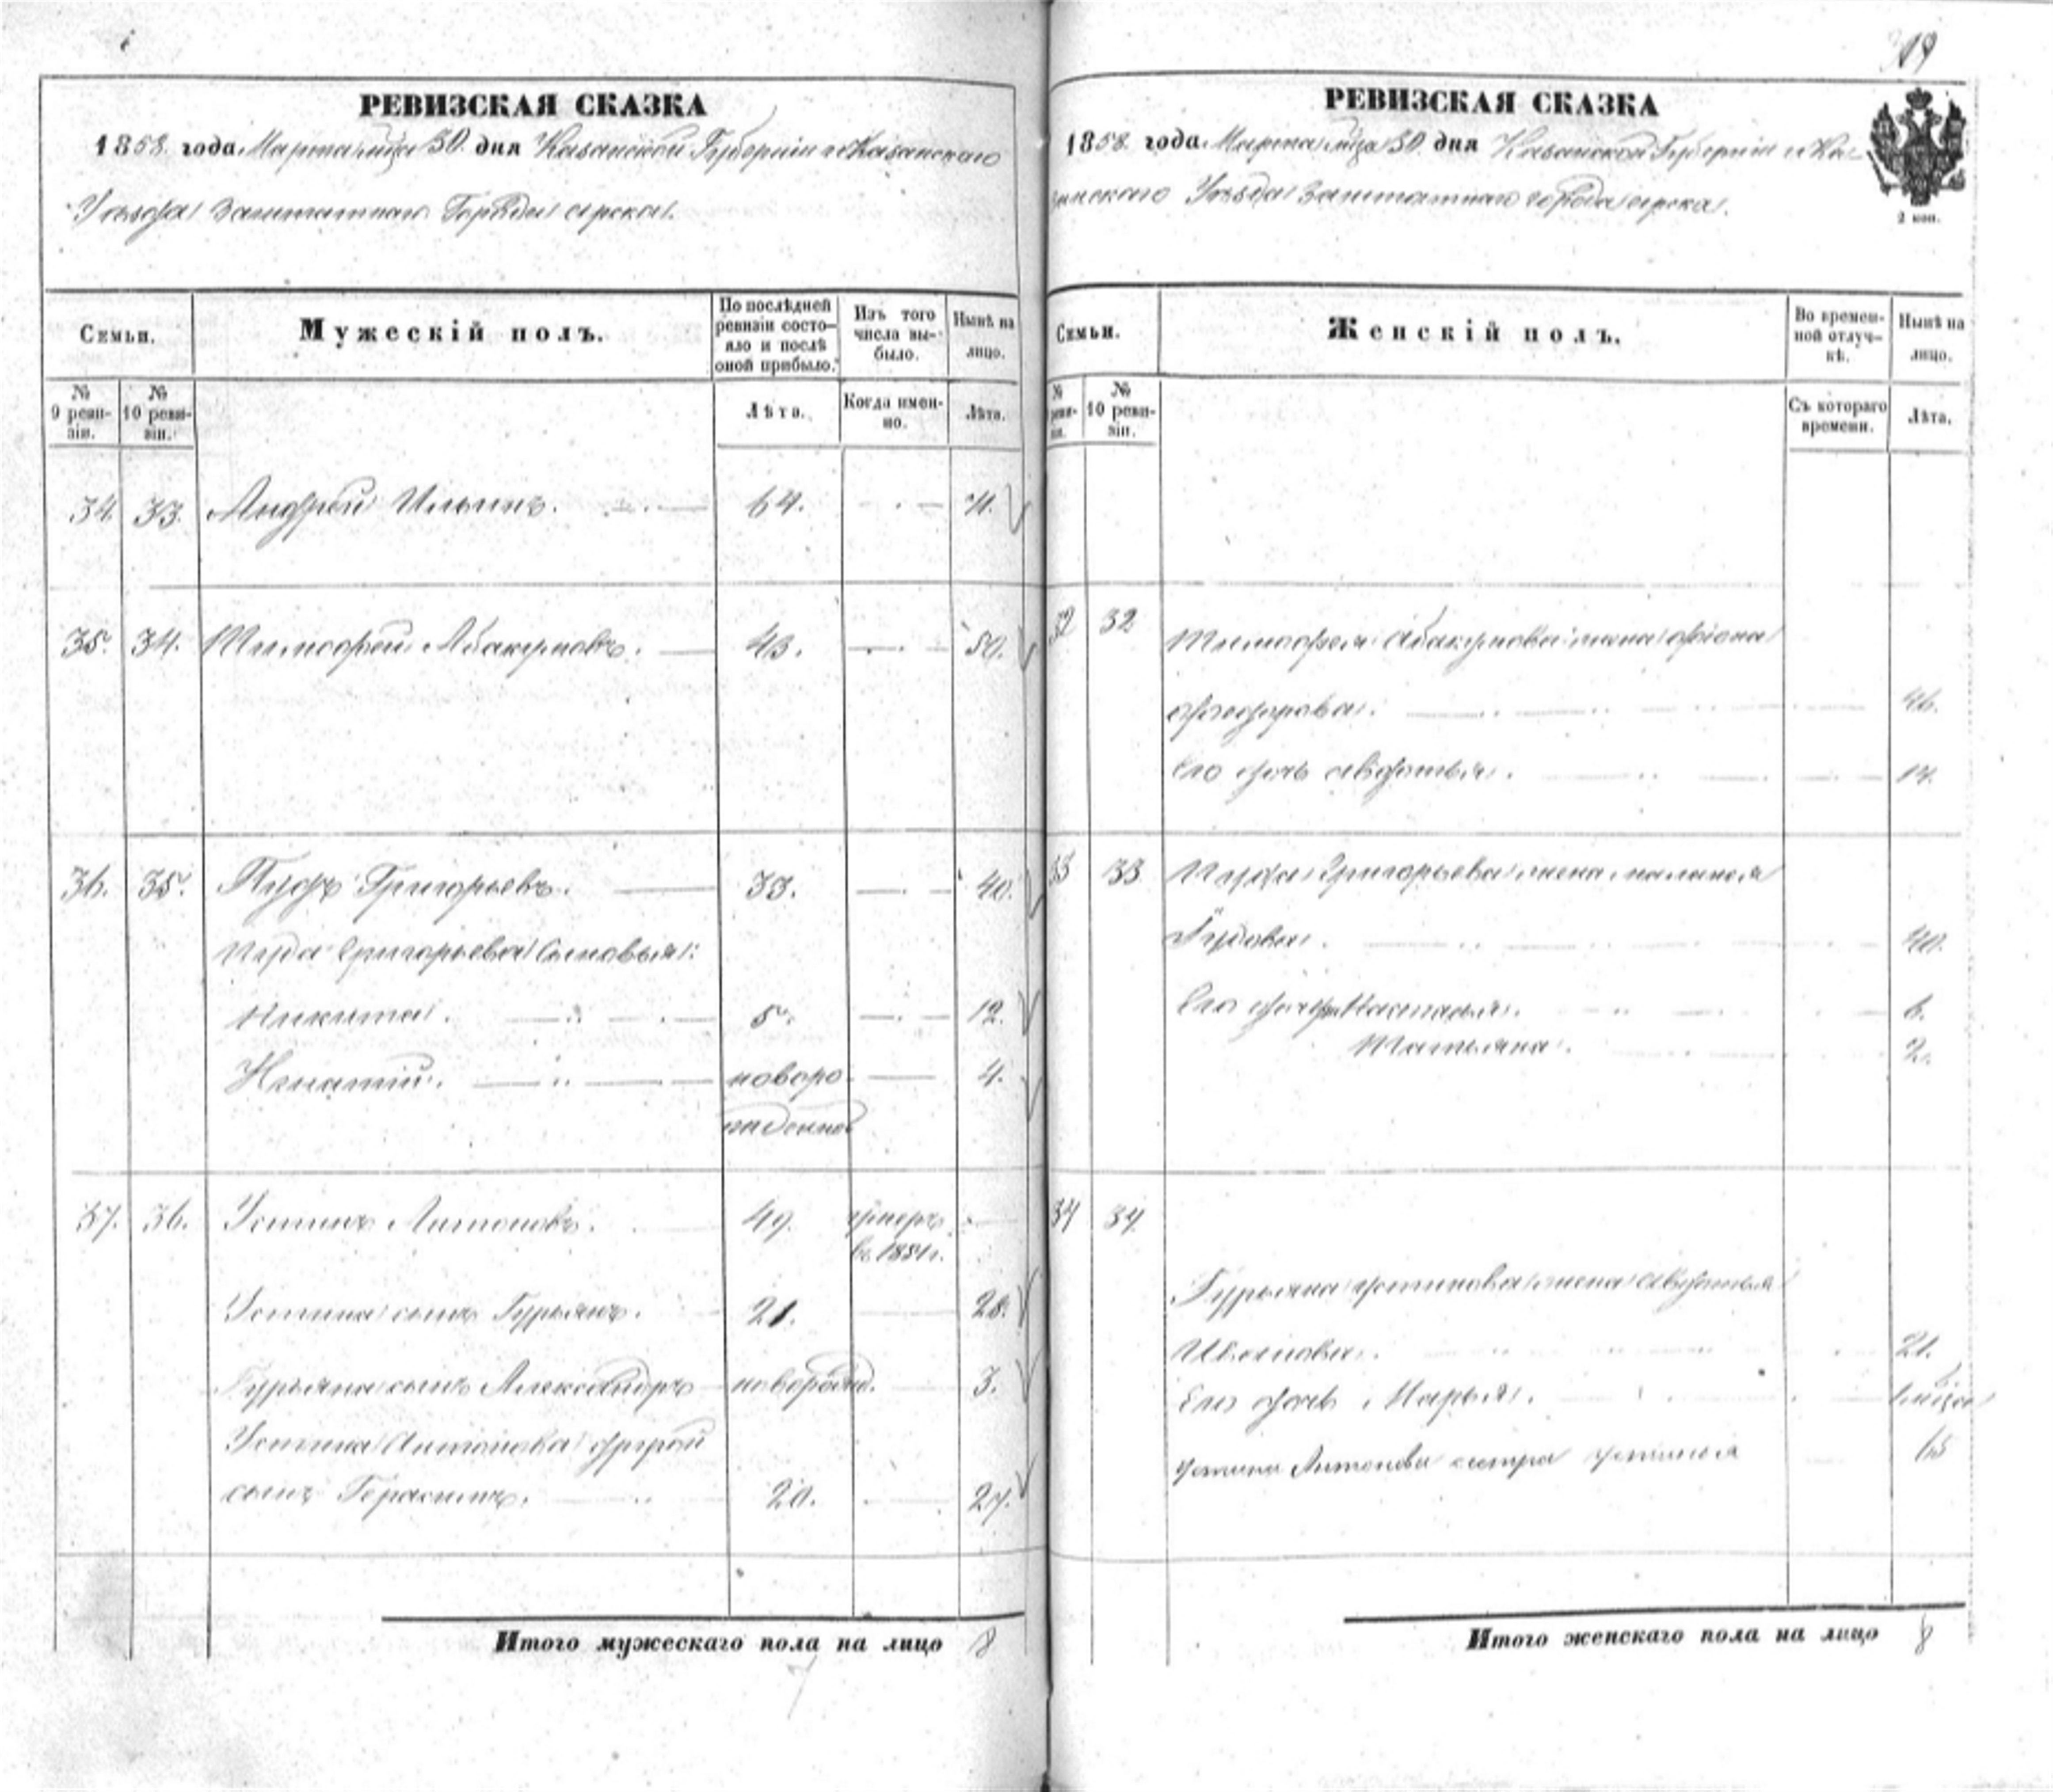 319
РЕВИЗСКАЯ СКАЗКА
1858 года Марта м-ца 30 дня Казанской Губернии и Казанскаго
Уезда Заштатнаго Города Арска.
Семьи.
Мужескій полъ.
По послѣдней ревизіи состо-
яло и послѣ
оной прибыло.
Изъ того
числа вы-
было.
Нынѣ на
лицо.
№
9 реви-
зіи.
№
10 реви-
зіи.
Лѣта.
Когда имен-
но.
Лѣта.
34. 33. Андрей Ильинъ. 64. 71.
35. 34. Тимофей Абакумовъ. 43. 50.
36. 35. Пудъ Григорьевъ. 33. 40.
Пуда Григорьева Сыновья:
Никита. 5. 12.
Игнатій. новоро 4.
жденной
37. 36. Устинъ Антоновъ. 49. умеръ
въ 1851 г.
Устина сынъ Гурьянъ. 21. 28.
Гурьяна сынъ Александръ новорожд. 3.
Устина Антонова другой
сынъ Герасимъ. 20. 27.
Итого мужескаго пола на лицо 8
7
РЕВИЗСКАЯ СКАЗКА
1858 года Марта м-ца 30 дня Казанской Губернии и Ка-
занскаго Уезда Заштатнаго города Арска.
2 коп.
Семьи.
Женскій полъ.
Во времен-
ной отлуч-
кѣ.
Нынѣ на
лицо.
№
реви-
зіи.
№
10 реви-
зіи.
Съ котораго
времени.
Лѣта.
32 32 Тимофея Абакумова жена
Федорова. 46.
Его дочь Авдотья. 17.
33 33 Пуда Григорьева жена Маланья
40.
Его дочери Настасья. 6.
Татьяна. 2.
34 34
Гурьяна Устинова жена Авдотья
Иванова. 21.
Его дочь Марья.
Устина Антонова сестра Устинья
Итого женскаго пола на лицо 8